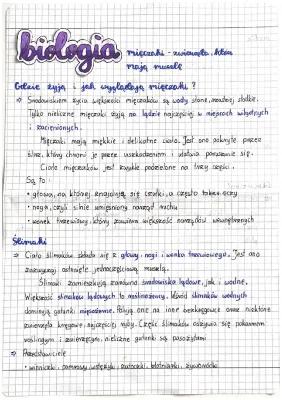 biologia mięczaki - zwierzęta, które
mają muszlę
Gdzie żyją i jak wyglądają mięczaki?
⇒ Środowiskiem życia większości mięczaków są wody słone, rzadziej słodkie.
Tylko nieliczne mięczaki żyją na lądzie najczęściej w miejscach wilgotnych
i zacienionych.
Mięczaki mają miękkie i delikatne ciało. Jest ono pokryte przez
śluz, który chroni je przed uszkodzeniem i ułatwia poruszanie się.
Ciało mięczaków jest zwykle podzielone na trzy części.
Są to:
• głowa, na której znajdują się czułki, a często także oczy
• noga, czyli silnie umięśniony narząd ruchu
• worek trzewiowy, który zawiera większość narządów wewnętrznych
Ślimaki
⇒ Ciało ślimaków składa się z głowy, nogi i worka trzewiowego. Jest ono
zazwyczaj osłonięte jednoczęściową muszlą.
Ślimaki zamieszkują zarówno środowiska lądowe, jak i wodne.
Większość ślimaków lądowych to roślinożercy. Wśród ślimaków wodnych
dominują gatunki mięsożerne. Polują one na inne bezkręgowce oraz niektóre
zwierzęta kręgowe, najczęściej ryby. Część ślimaków odżywia się pokarmem
roślinnym i zwierzęcym, nieliczne gatunki są pasożytami
⇒ Przedstawiciele
• winniczki, pomrowy, wstężyki, zatoczki, błotniarki, żyworódki